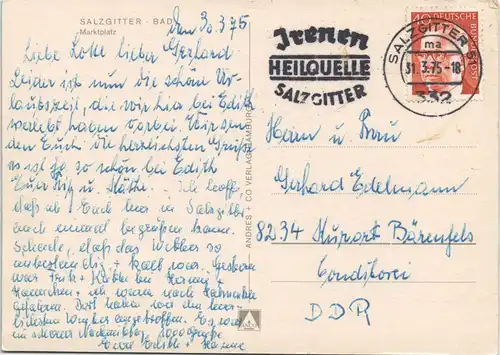 SALZGITTER - BAD
Marktplatz
den 30.3.75
Liebe Lotte lieber Gerhard
Leider ist nun die schöne Ur-
laubszeit, die wir hier bei Edith
verlebt haben vorbei. Wir sen-
den Euch die herzlichsten Grüße
es ist so schön bei Edith
Eure u. Käthe. Ich hoffe
daß ich Euch hier in Salzgitter
noch einmal begrüßen kann.
Schade, daß das Wetter so
unbeständig + kalt war. Gestern
war + Käthe bei +
ich waren nach
gefahren. Dort haben wir den
getroffen. Es war
ein schöner Nachmittag. 1000 Grüße
Eure Edith +
ANDRES + CO VERLAG HAMBURG
Irenen
HEILQUELLE
SALZGITTER
SALZGITTER 51
ma
31.3.75-18
332
40 DEUTSCHE BUNDESPOST
Herrn u. Frau
Gerhard Edelmann
8234 Kurort Bärenfels
Conditorei
DDR